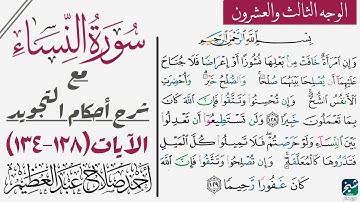 الوجه الثالث والعشرون
بِسْمِ اللَّهِ الرَّحْمَٰنِ الرَّحِيمِ
وَإِنِ امْرَأَةٌ خَافَتْ مِنْ بَعْلِهَا نُشُوزًا أَوْ إِعْرَاضًا فَلَا جُنَاحَ
عَلَيْهِمَا أَن يُصْلِحَا بَيْنَهُمَا صُلْحًا وَالصُّلْحُ خَيْرٌ وَأُحْضِرَتِ
الْأَنفُسُ الشُّحَّ وَإِن تُحْسِنُوا وَتَتَّقُوا فَإِنَّ اللَّهَ كَانَ
بِمَا تَعْمَلُونَ خَبِيرًا ١٢٨ وَلَن تَسْتَطِيعُوا أَن تَعْدِلُوا
بَيْنَ النِّسَاءِ وَلَوْ حَرَصْتُمْ فَلَا تَمِيلُوا كُلَّ الْمَيْلِ
فَتَذَرُوهَا كَالْمُعَلَّقَةِ وَإِن تُصْلِحُوا وَتَتَّقُوا فَإِنَّ اللَّهَ
كَانَ غَفُورًا رَّحِيمًا ١٢٩
سُورَةُ النِّسَاءِ
مع
شرح أحكام التجويد
الآيات (١٢٨-١٣٤)
أحمد صلاح عبد العظيم